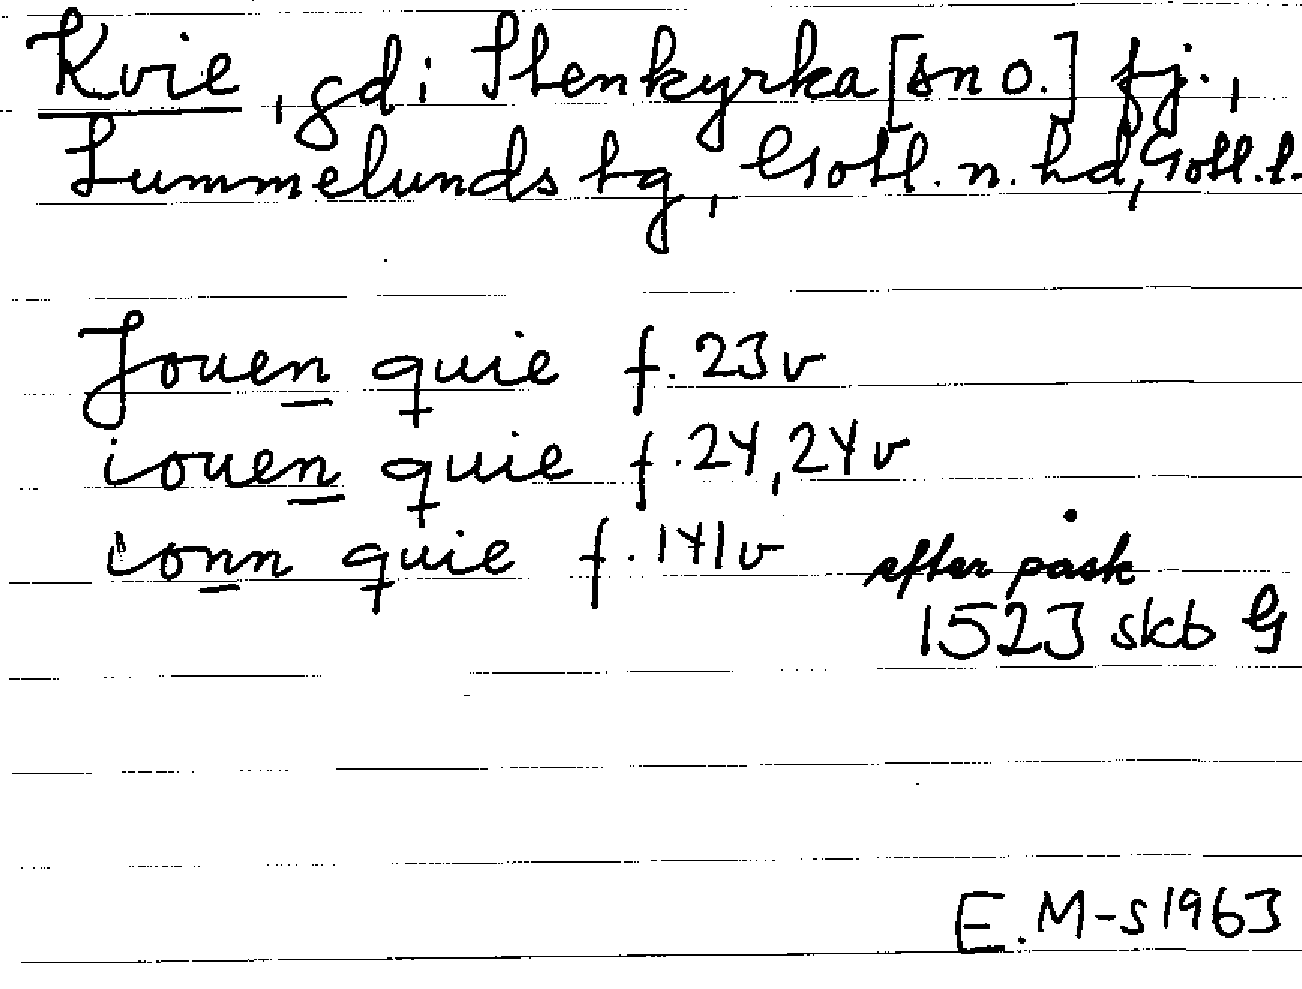 Kvie, gd i Stenkyrka [sn o.] tj.,
Lummelunds tg, Gotl. n. hd, Gotl. l.
Jouen quie f. 23v
iouen quie f. 24, 24v
ionn quie f. 141v efter påsk
1523 skb G
E. M-s 1963